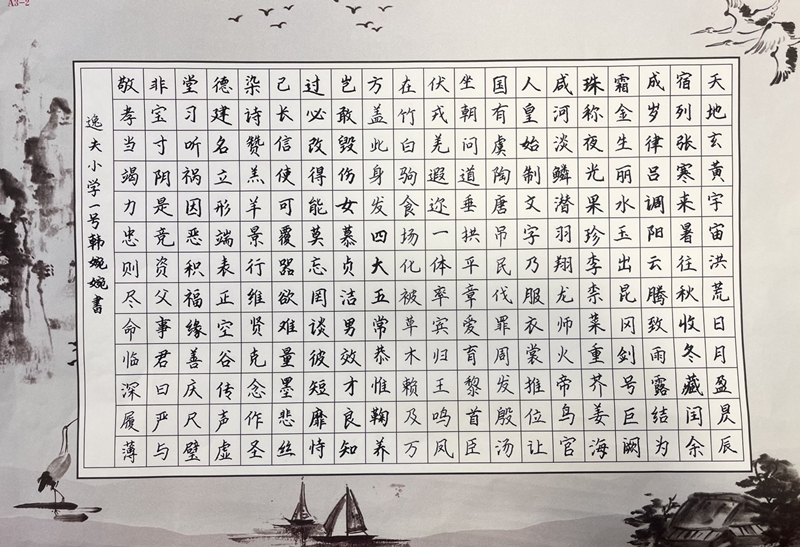 A3-2
天地玄黄宇宙洪荒日月盈昃辰
宿列张寒来暑往秋收冬藏闰余
成岁律吕调阳云腾致雨露结为
霜金生丽水玉出昆冈剑号巨阙
珠称夜光果珍李柰菜重芥姜海
咸河淡鳞潜羽翔龙师火帝鸟官
人皇始制文字乃服衣裳推位让
国有虞陶唐吊民伐罪周发殷汤
坐朝问道垂拱平章爱育黎首臣
伏戎羌遐迩一体率宾归王鸣凤
在竹白驹食场化被草木赖及万
方盖此身发四大五常恭惟鞠养
岂敢毁伤女慕贞洁男效才良知
过必改得能莫忘罔谈彼短靡恃
己长信使可覆器欲难量墨悲丝
染诗赞羔羊景行维贤克念作圣
德建名立形端表正空谷传声虚
堂习听祸因恶积福缘善庆尺璧
非宝寸阴是竞资父事君曰严与
敬孝当竭力忠则尽命临深履薄
逸夫小学一号韩婉婉书